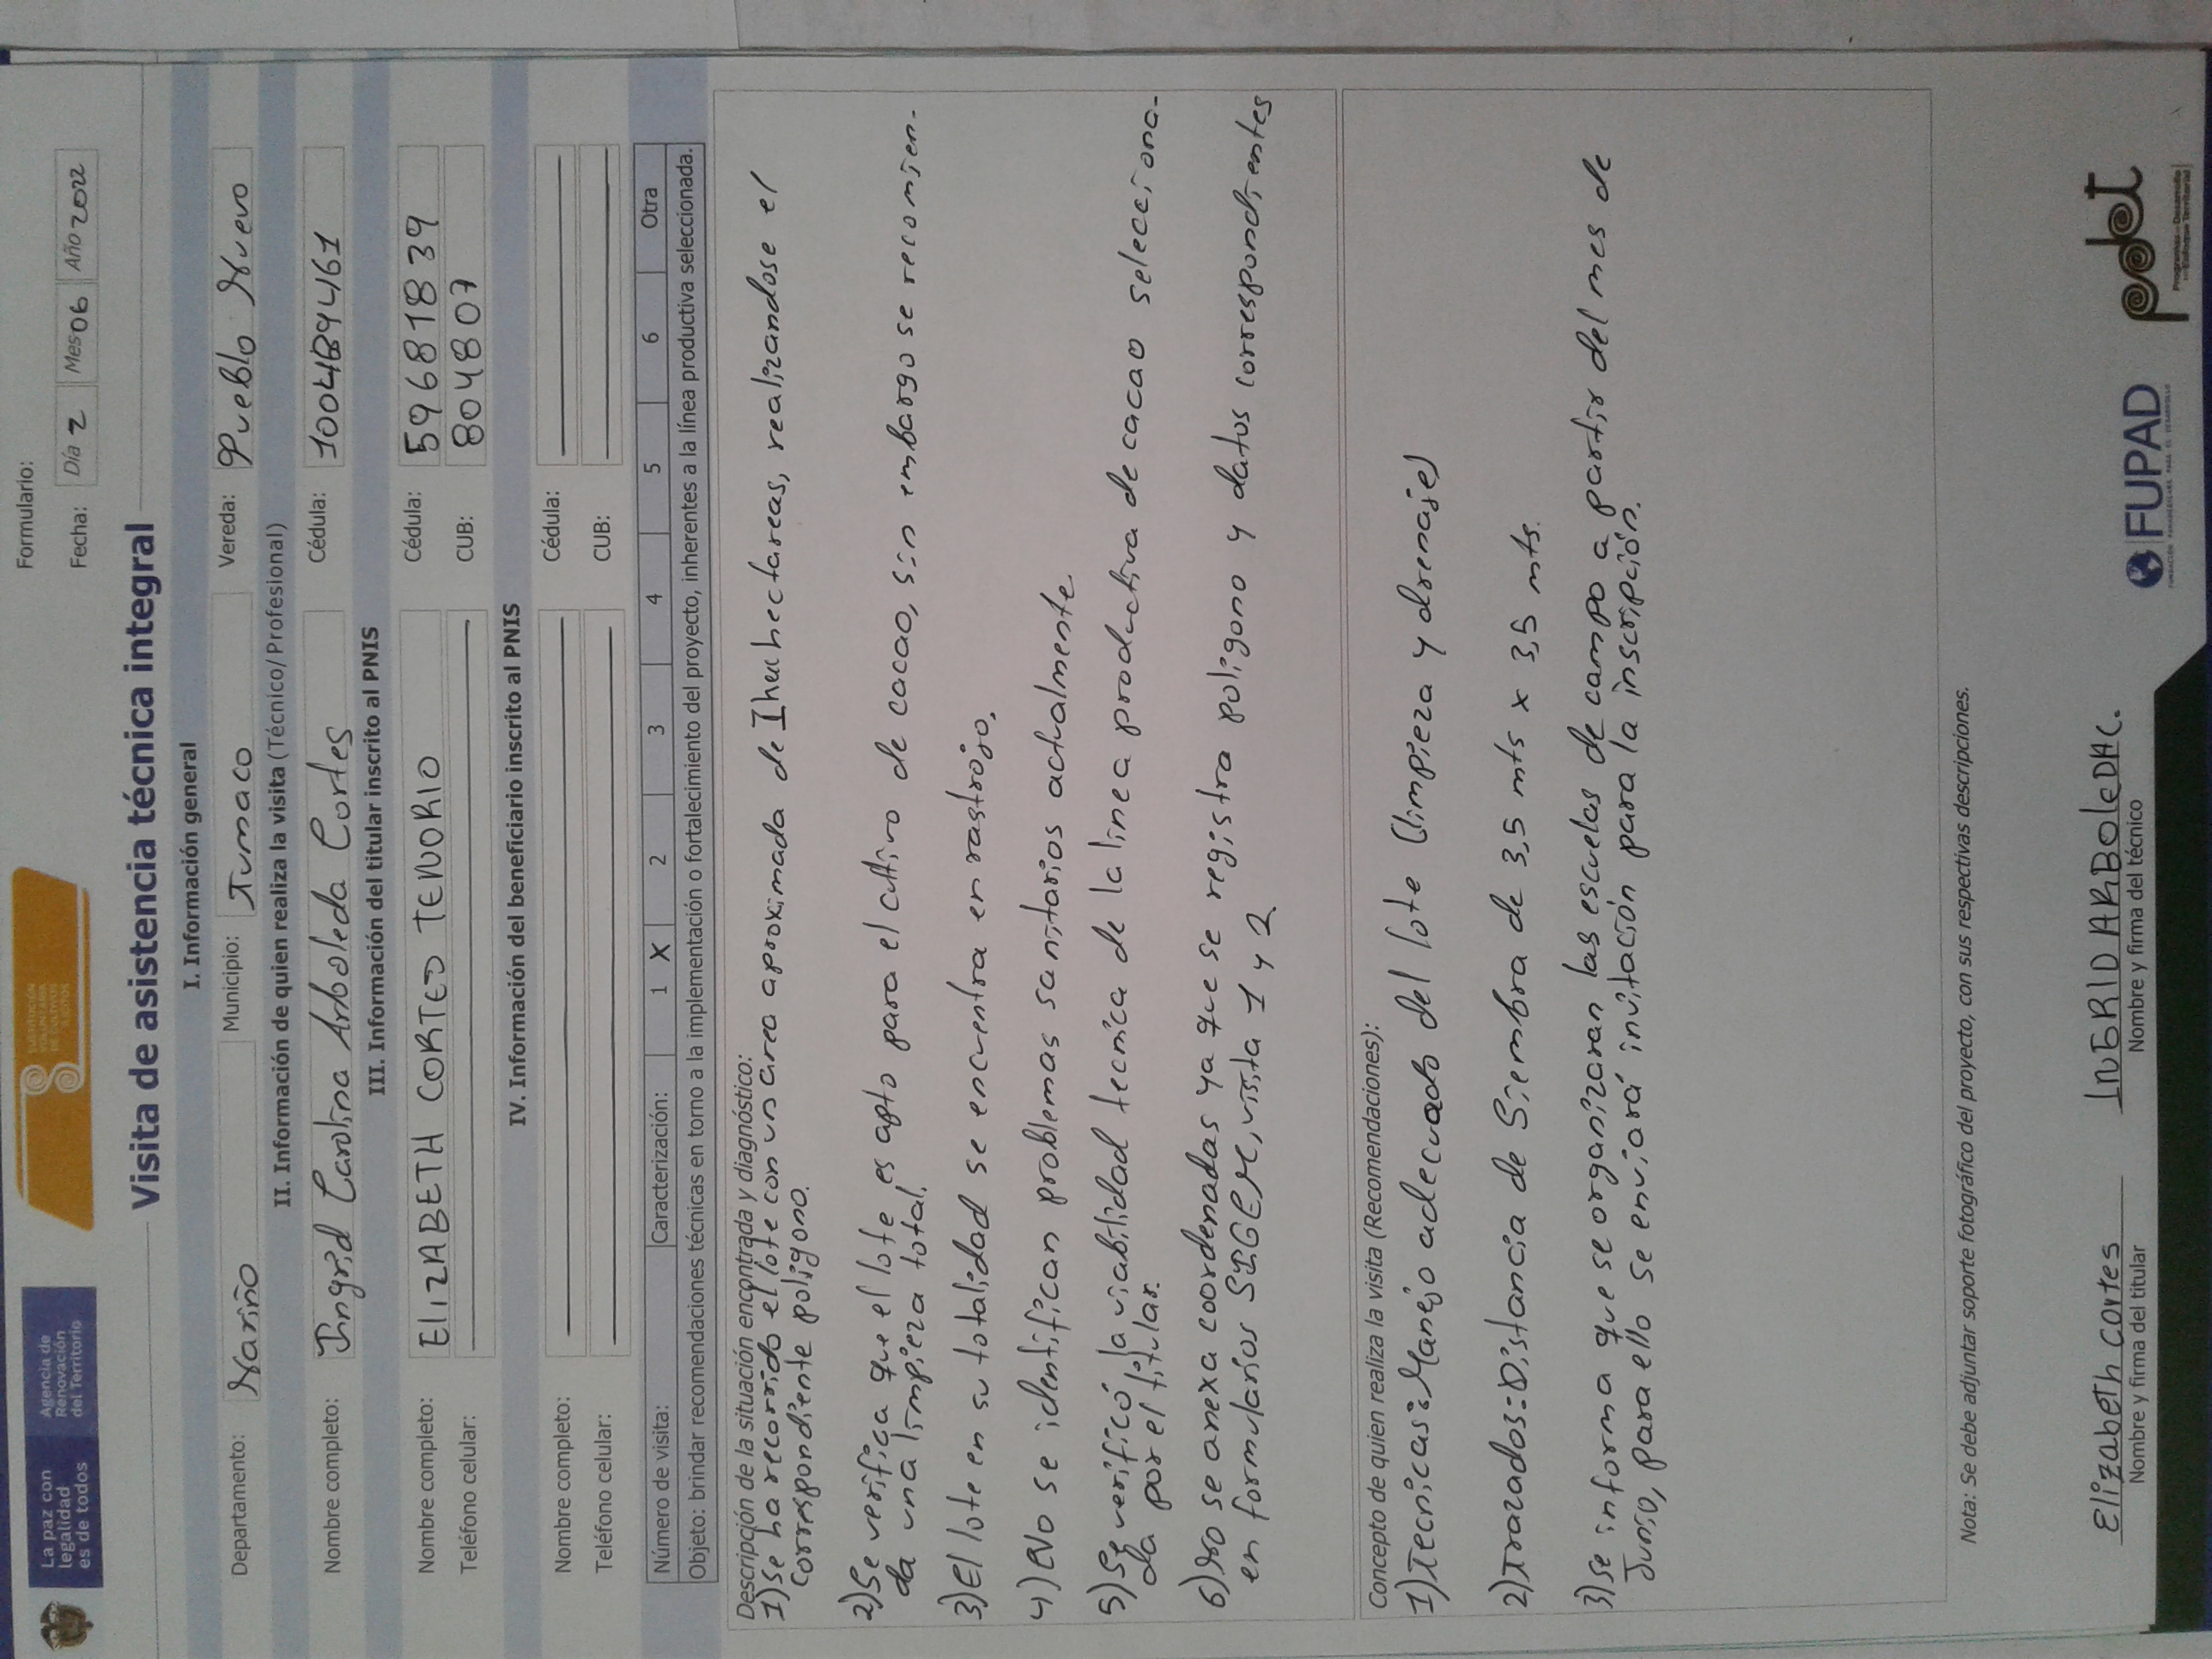 La paz con
legalidad
es de todos
Agencia de
Renovación
del Territorio
SUSTITUCIÓN
VOLUNTARIA
DE CULTIVOS
ILÍCITOS
Formulario:
Fecha: Día 2 Mes 06 Año 2022
Visita de asistencia técnica integral
I. Información general
Departamento: Nariño Municipio: Tumaco Vereda: Pueblo Nuevo
II. Información de quien realiza la visita (Técnico/Profesional)
Nombre completo: Ingrid Carolina Arboleda Cortes Cédula:
III. Información del titular inscrito al PNIS
Nombre completo: ElIZABETH CORTES TENORIO Cédula: 59681839
Teléfono celular: CUB: 804807
IV. Información del beneficiario inscrito al PNIS
Nombre completo: Cédula:
Teléfono celular: CUB:
Número de visita: Caracterización: 1 X 2 3 4 5 6 Otra
Objeto: brindar recomendaciones técnicas en torno a la implementación o fortalecimiento del proyecto, inherentes a la línea productiva seleccionada.
Descripción de la situación encontrada y diagnóstico:
1) Se ha recorrido el lote con un area aproximada de 1 hectareas, realizandose el
correspondiente poligono.
2) Se verifica que el lote es apto para el cultivo de cacao, sin embargo se recomien-
da una limpieza total.
3) El lote en su totalidad se encuentra en rastrojo.
4) No se identifican problemas sanitarios actualmente
5) Se verificó la viabilidad tecnica de la linea productiva de cacao selecciona-
da por el titular.
6) No se anexa coordenadas ya que se registra poligono y datos correspondientes
en formularios visita 1 y 2.
Concepto de quien realiza la visita (Recomendaciones):
1) Tecnicas: Manejo adecuado del lote (limpieza y drenaje)
2) Trazados: Distancia de Siembra de 3,5 mts x 3,5 mts.
3) Se informa que se organizaran las escuelas de campo a partir del mes de
Junio, para ello se enviará invitación para la inscripción.
Nota: Se debe adjuntar soporte fotográfico del proyecto, con sus respectivas descripciones.
Elizabeth cortes
Nombre y firma del titular
INGRID ARBOleDA C.
Nombre y firma del técnico
FUPAD
FUNDACIÓN PANAMERICANA PARA EL DESARROLLO
pdet
Programas de Desarrollo
con Enfoque Territorial